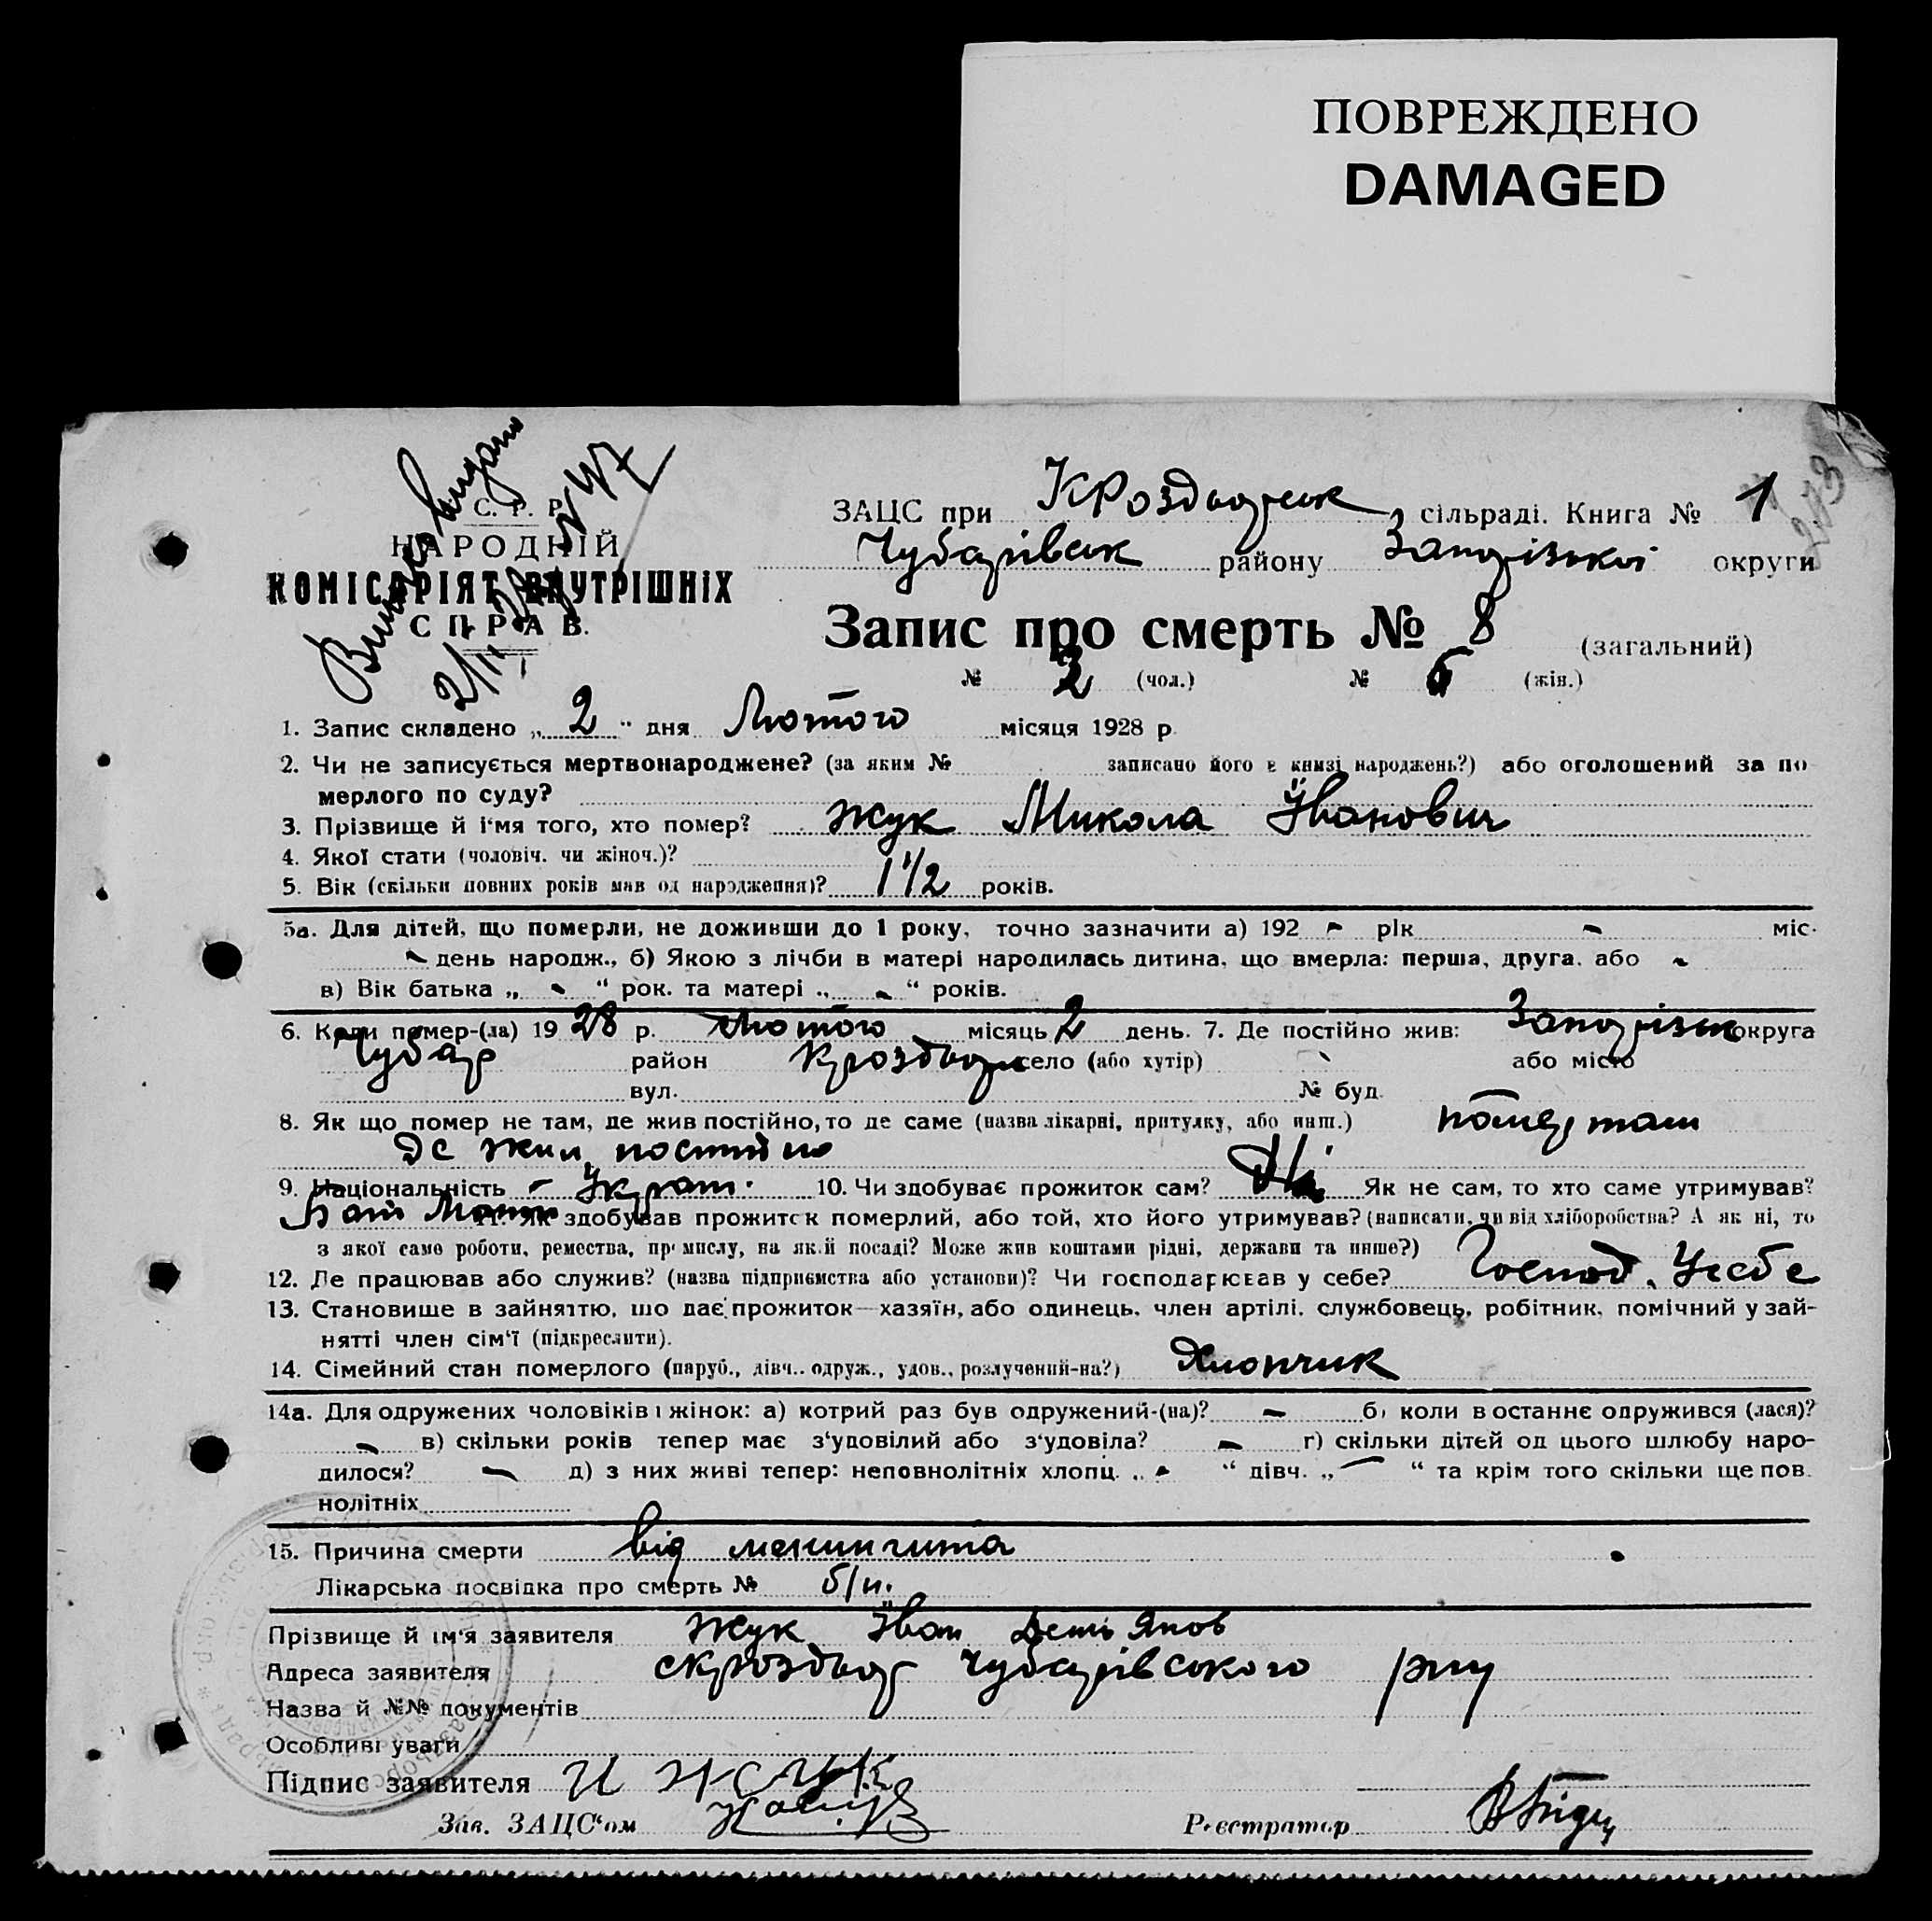 ПОВРЕЖДЕНО
DAMAGED
С. Р. Р.
НАРОДНІЙ
КОМІСАРІЯТ ВНУТРІШНІХ
СПРАВ.
ЗАЦС при КРоздорськ сільраді. Книга № 1
Чубарівськ району Запорізької округи
Запис про смерть № 8 (загальний)
№ 2 (чол.) № 6 (жін.)
1. Запис складено „ 2 “ дня Лютого місяця 1928 р.
2. Чи не записується мертвонароджене? (за яким № записано його в книзі народжень?) або оголошений за по
мерлого по суду?
3. Прізвище й і‘мя того, хто помер? Жук Микола Іванович
4. Якої стати (чоловіч. чи жіноч.)?
5. Вік (скільки повних років мав од народження)? 1 1/2 років.
5а. Для дітей, що померли, не доживши до 1 року, точно зазначити а) 192 - рік - міс.
- день народж., б) Якою з лічби в матері народилась дитина, що вмерла: перша, друга, або -
в) Вік батька „ - “ рок. та матері „ - “ років.
6. Коли помер-(ла) 19 28 р. Лютого місяць 2 день. 7. Де постійно жив: Запорізьк округа
Чубар район село (або хутір) або місто
вул. № буд.
8. Як що помер не там, де жив постійно, то де саме (назва лікарні, притулку, або инш.) помер там
де жил постійно
9. Національність - Украт. 10. Чи здобуває прожиток сам? Ні Як не сам, то хто саме утримував?
Бат Мати 11. Як здобував прожиток померлий, або той, хто його утримував? (написати, чи від хліборобства? А як ні, то
з якої саме роботи, ремества, промислу, на якій посаді? Може жив коштами рідні, держави та инше?)
12. Де працював або служив? (назва підприємства або установи)? Чи господарював у себе? Господ. Усебе
13. Становище в зайняттю, що дає прожиток—хазяїн, або одинець, член артілі, службовець, робітник, помічний у зай-
нятті член сім‘ї (підкреслити).
14. Сімейний стан померлого (паруб., дівч., одруж., удов., розлучений-на?) Хлопчик
14а. Для одружених чоловіків і жінок: а) котрий раз був одружений-(на)? - б) коли в останнє одружився (лася)?
- в) скільки років тепер має з‘удовілий або з‘удовіла? - г) скільки дітей од цього шлюбу наро-
дилося? - д) з них живі тепер: неповнолітніх хлопц. „ - “ дівч. „ - “ та крім того скільки ще пов.
нолітніх
15. Причина смерти від менингита
Лікарська посвідка про смерть № б/н.
Прізвище й ім‘я заявителя Жук Іван
Адреса заявителя Чубарівського рну
Назва й №№ документів
Особливі уваги
Підпис заявителя И Жук
Зав. ЗАЦС‘ом
Реєстратор